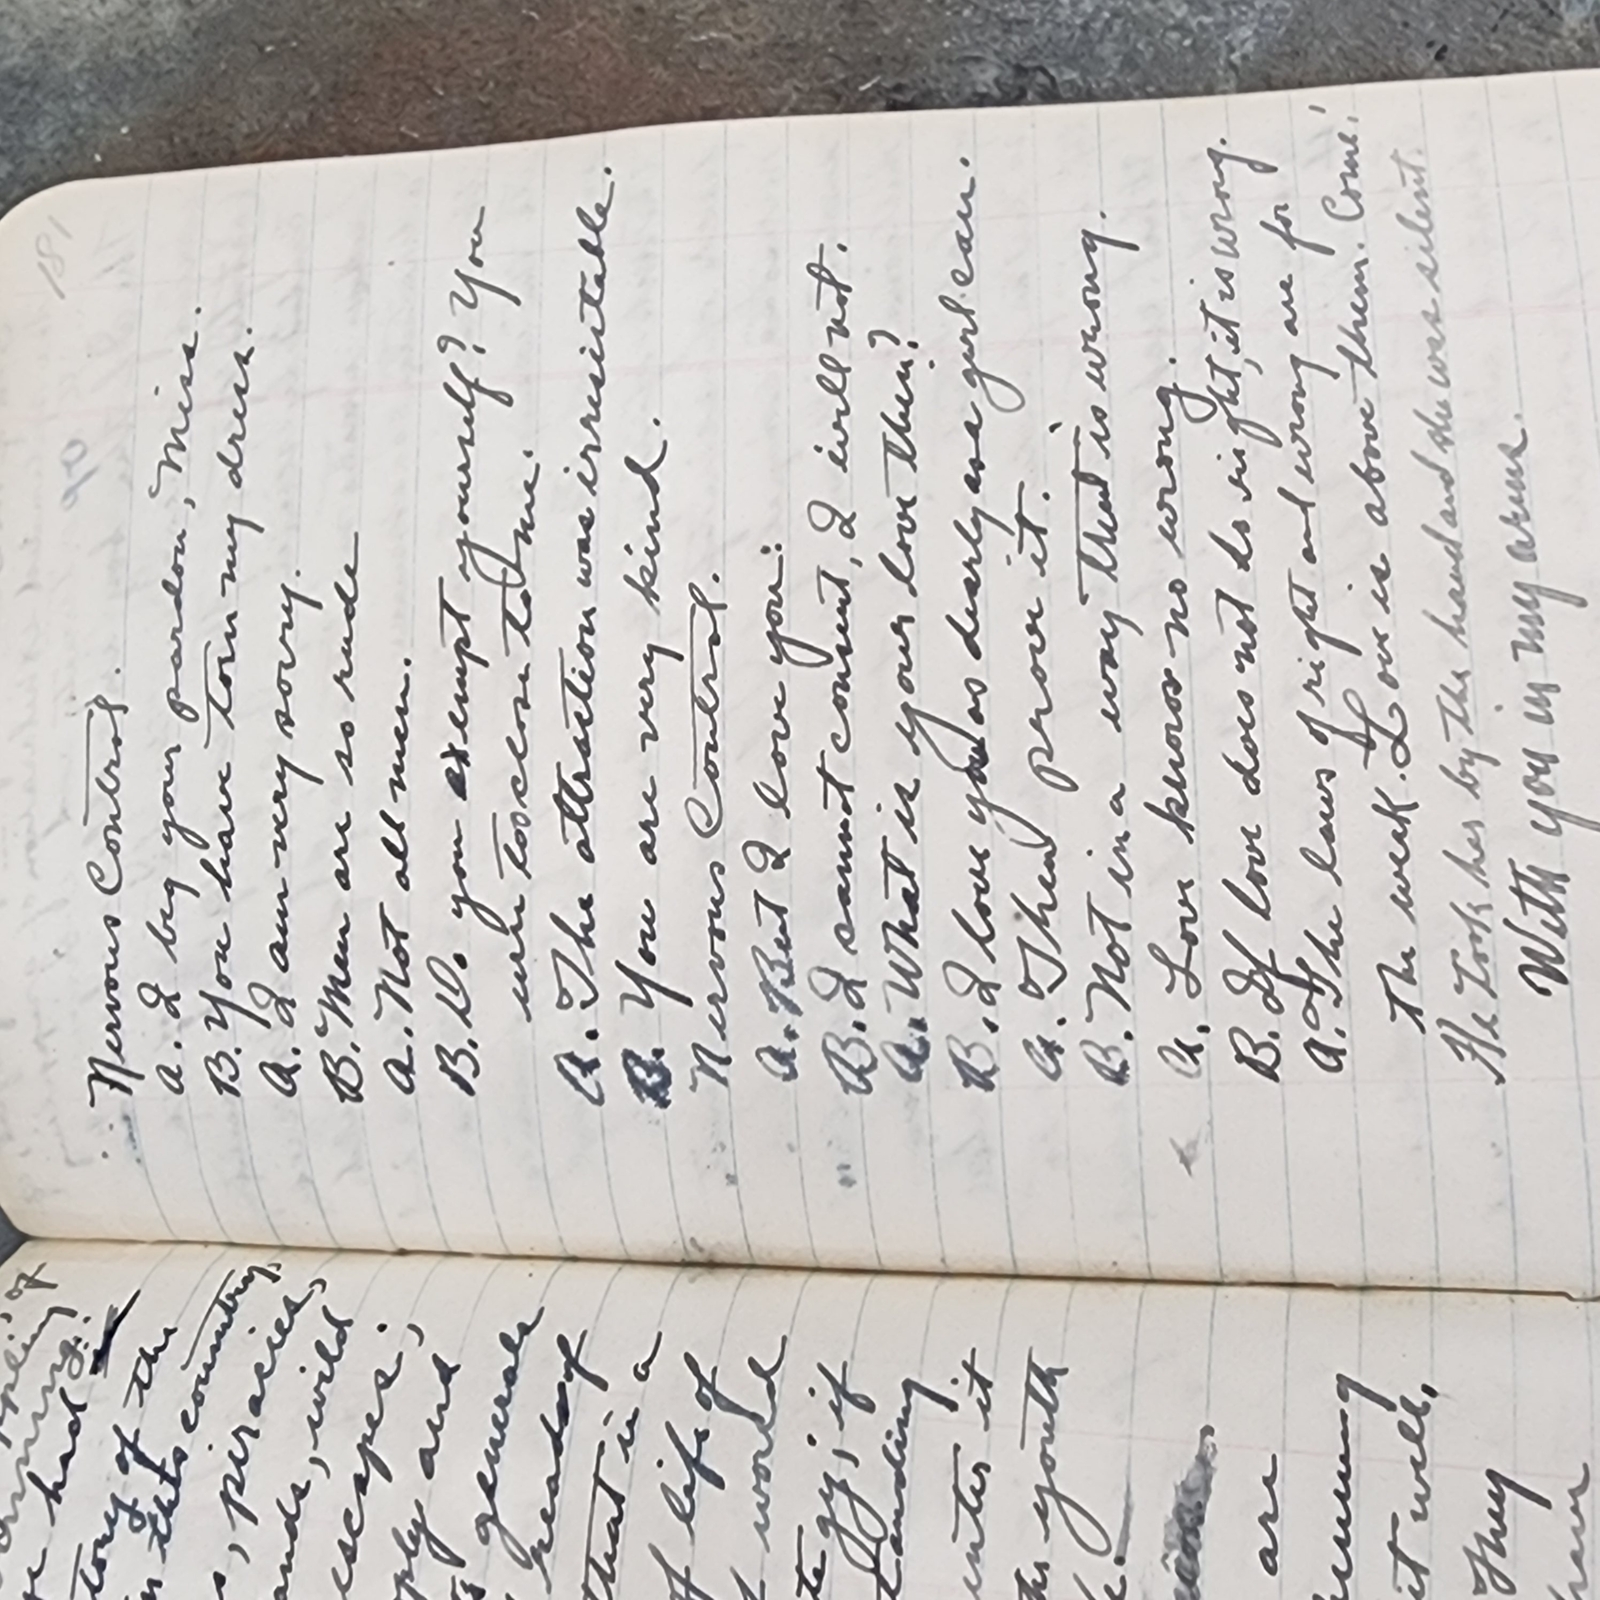 181
90
Nervous Control.
A. I beg your pardon, Miss.
B. You have torn my dress.
A. I am very sorry.
B. Men are so rude
A. Not all men.
B. D. you exempt yourself? You
were too close to me.
A. The attraction was irresistable.
B. You are very kind.
Nervous Control.
A. But I love you:
B. I cannot consent, I will not.
A. What is your love then?
B. I love you as dearly as a girl can.
A. Then prove it.
B. Not in a way that is wrong.
A. Love knows no wrong.
B. If love does not do right, it is wrong.
A. The laws of right and wrong are for
the weak. Love is above them. Come!
He took her by the hand and she was silent.
With you in my arms.
of
had
story of the
in this country,
, piracies,
, wild
escapes;
and
generals
ready of
that is a
of life of
world
if
it
youth
are
it well,
They